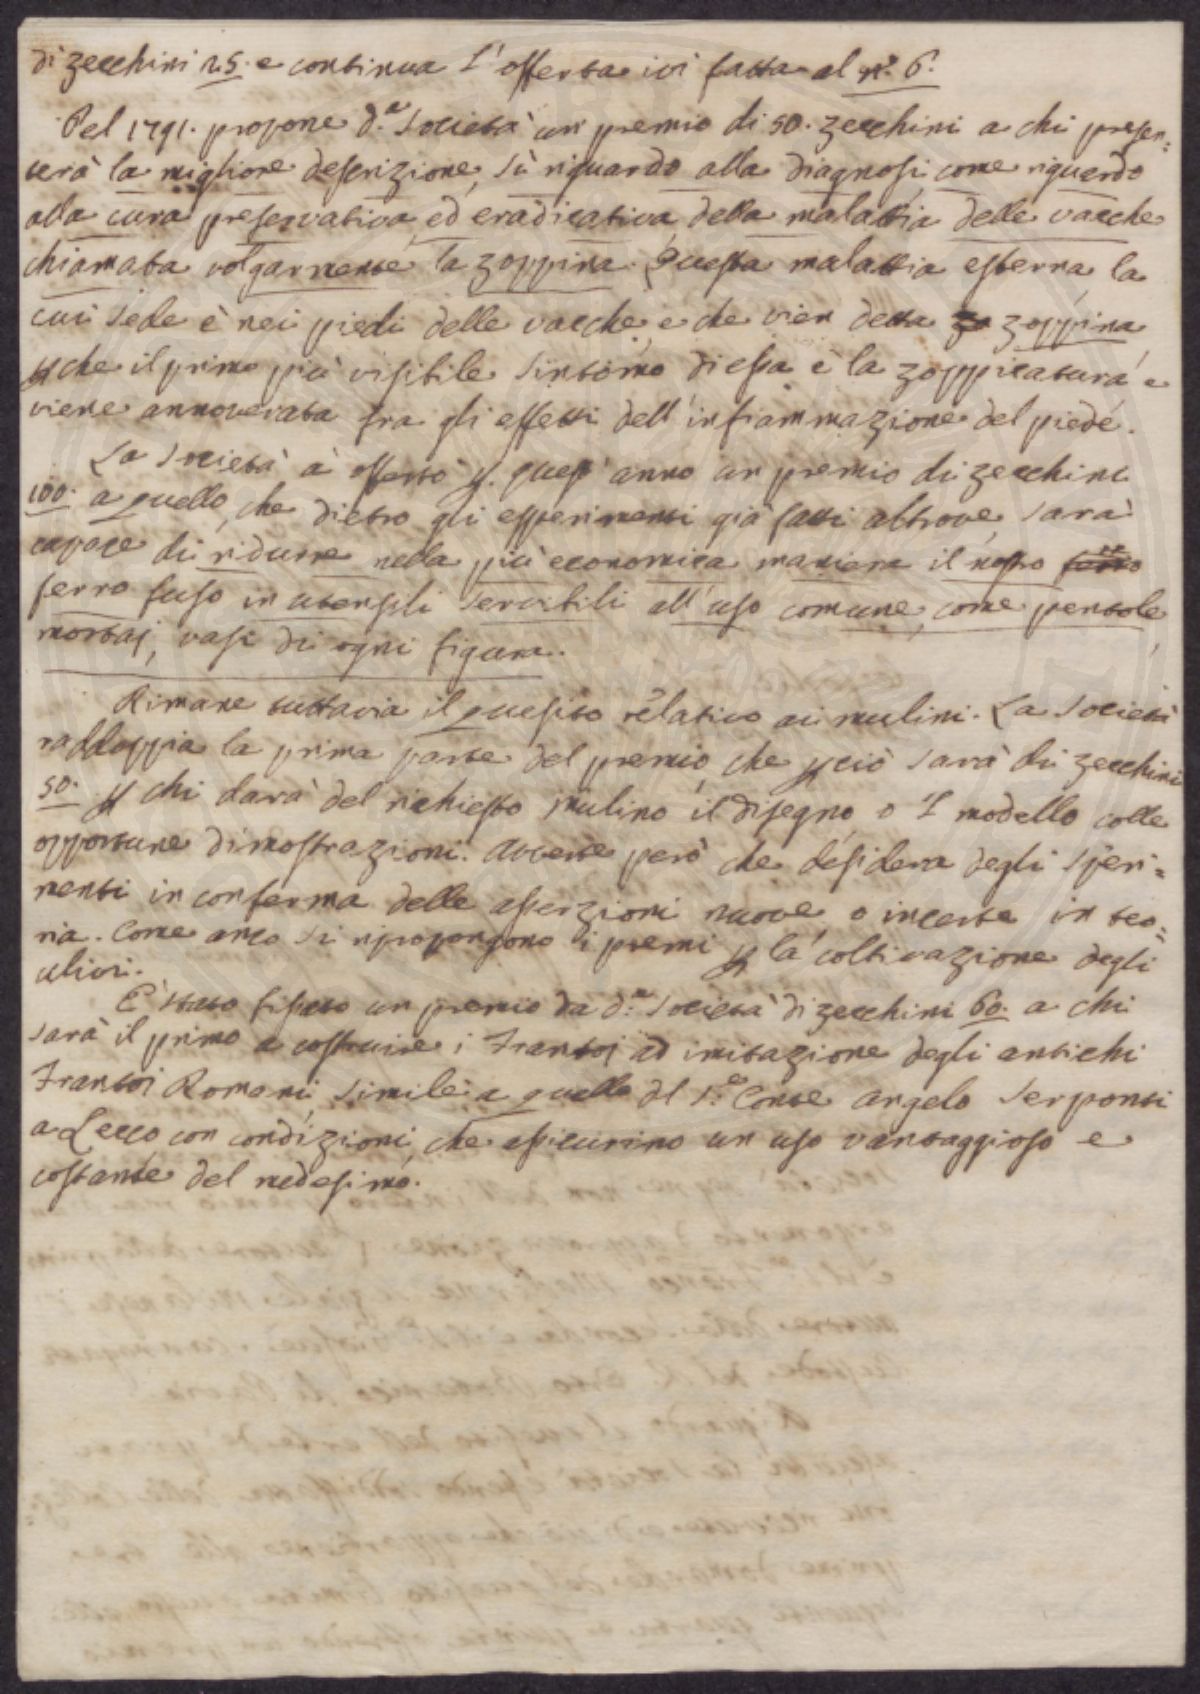 di zecchini 25. e continua l'offerta ivi fatta al n.° 6.
Pel 1791. propone d.a Società un premio di 50. zecchini a chi presen=
terà la migliore descrizione, sì riguardo alla diagnosi come riguardo
alla cura preservativa, ed eradicativa della malattia delle vacche
chiamata volgarmente la zoppina. Questa malattia esterna, la
cui sede è nei piedi delle vacche, e che vien detta zoppina
pche il primo più visibile sintomo di essa è la zoppicatura, e
viene annoverata fra gli effetti dell'infiammazione del piede.
La Società à offerto p. quest'anno un premio di zecchini
100. a quello, che dietro gli esperimenti già fatti altrove, sarà
capace di ridurre nella più economica maniera il nostro ferro
ferro fuso in utensili servibili all'uso comune, come pentole,
mortaj, vasi di ogni figura.
Rimane tuttavia il quesito relativo ai mulini. La Società
raddoppia la prima parte del premio, che pciò sarà di zecchini
50. p chi darà del richiesto mulino il disegno o 'l modello colle
opportune dimostrazioni. Avverte però che desidera degli speri=
menti in conferma delle asserzioni nuove, o incerte in teo=
ria. Come anco si ripropongono i premi p la coltivazione degli
ulivi.
È stato fissato un premio da d.a Società di zecchini 60. a chi
sarà il primo a costruire i Frantoj ad imitazione degli antichi
Frantoi Romani, simile a quello del S.r Conte Angelo Serponti
a Lecco con condizioni, che assicurino un uso vantaggioso e
costante del medesimo.